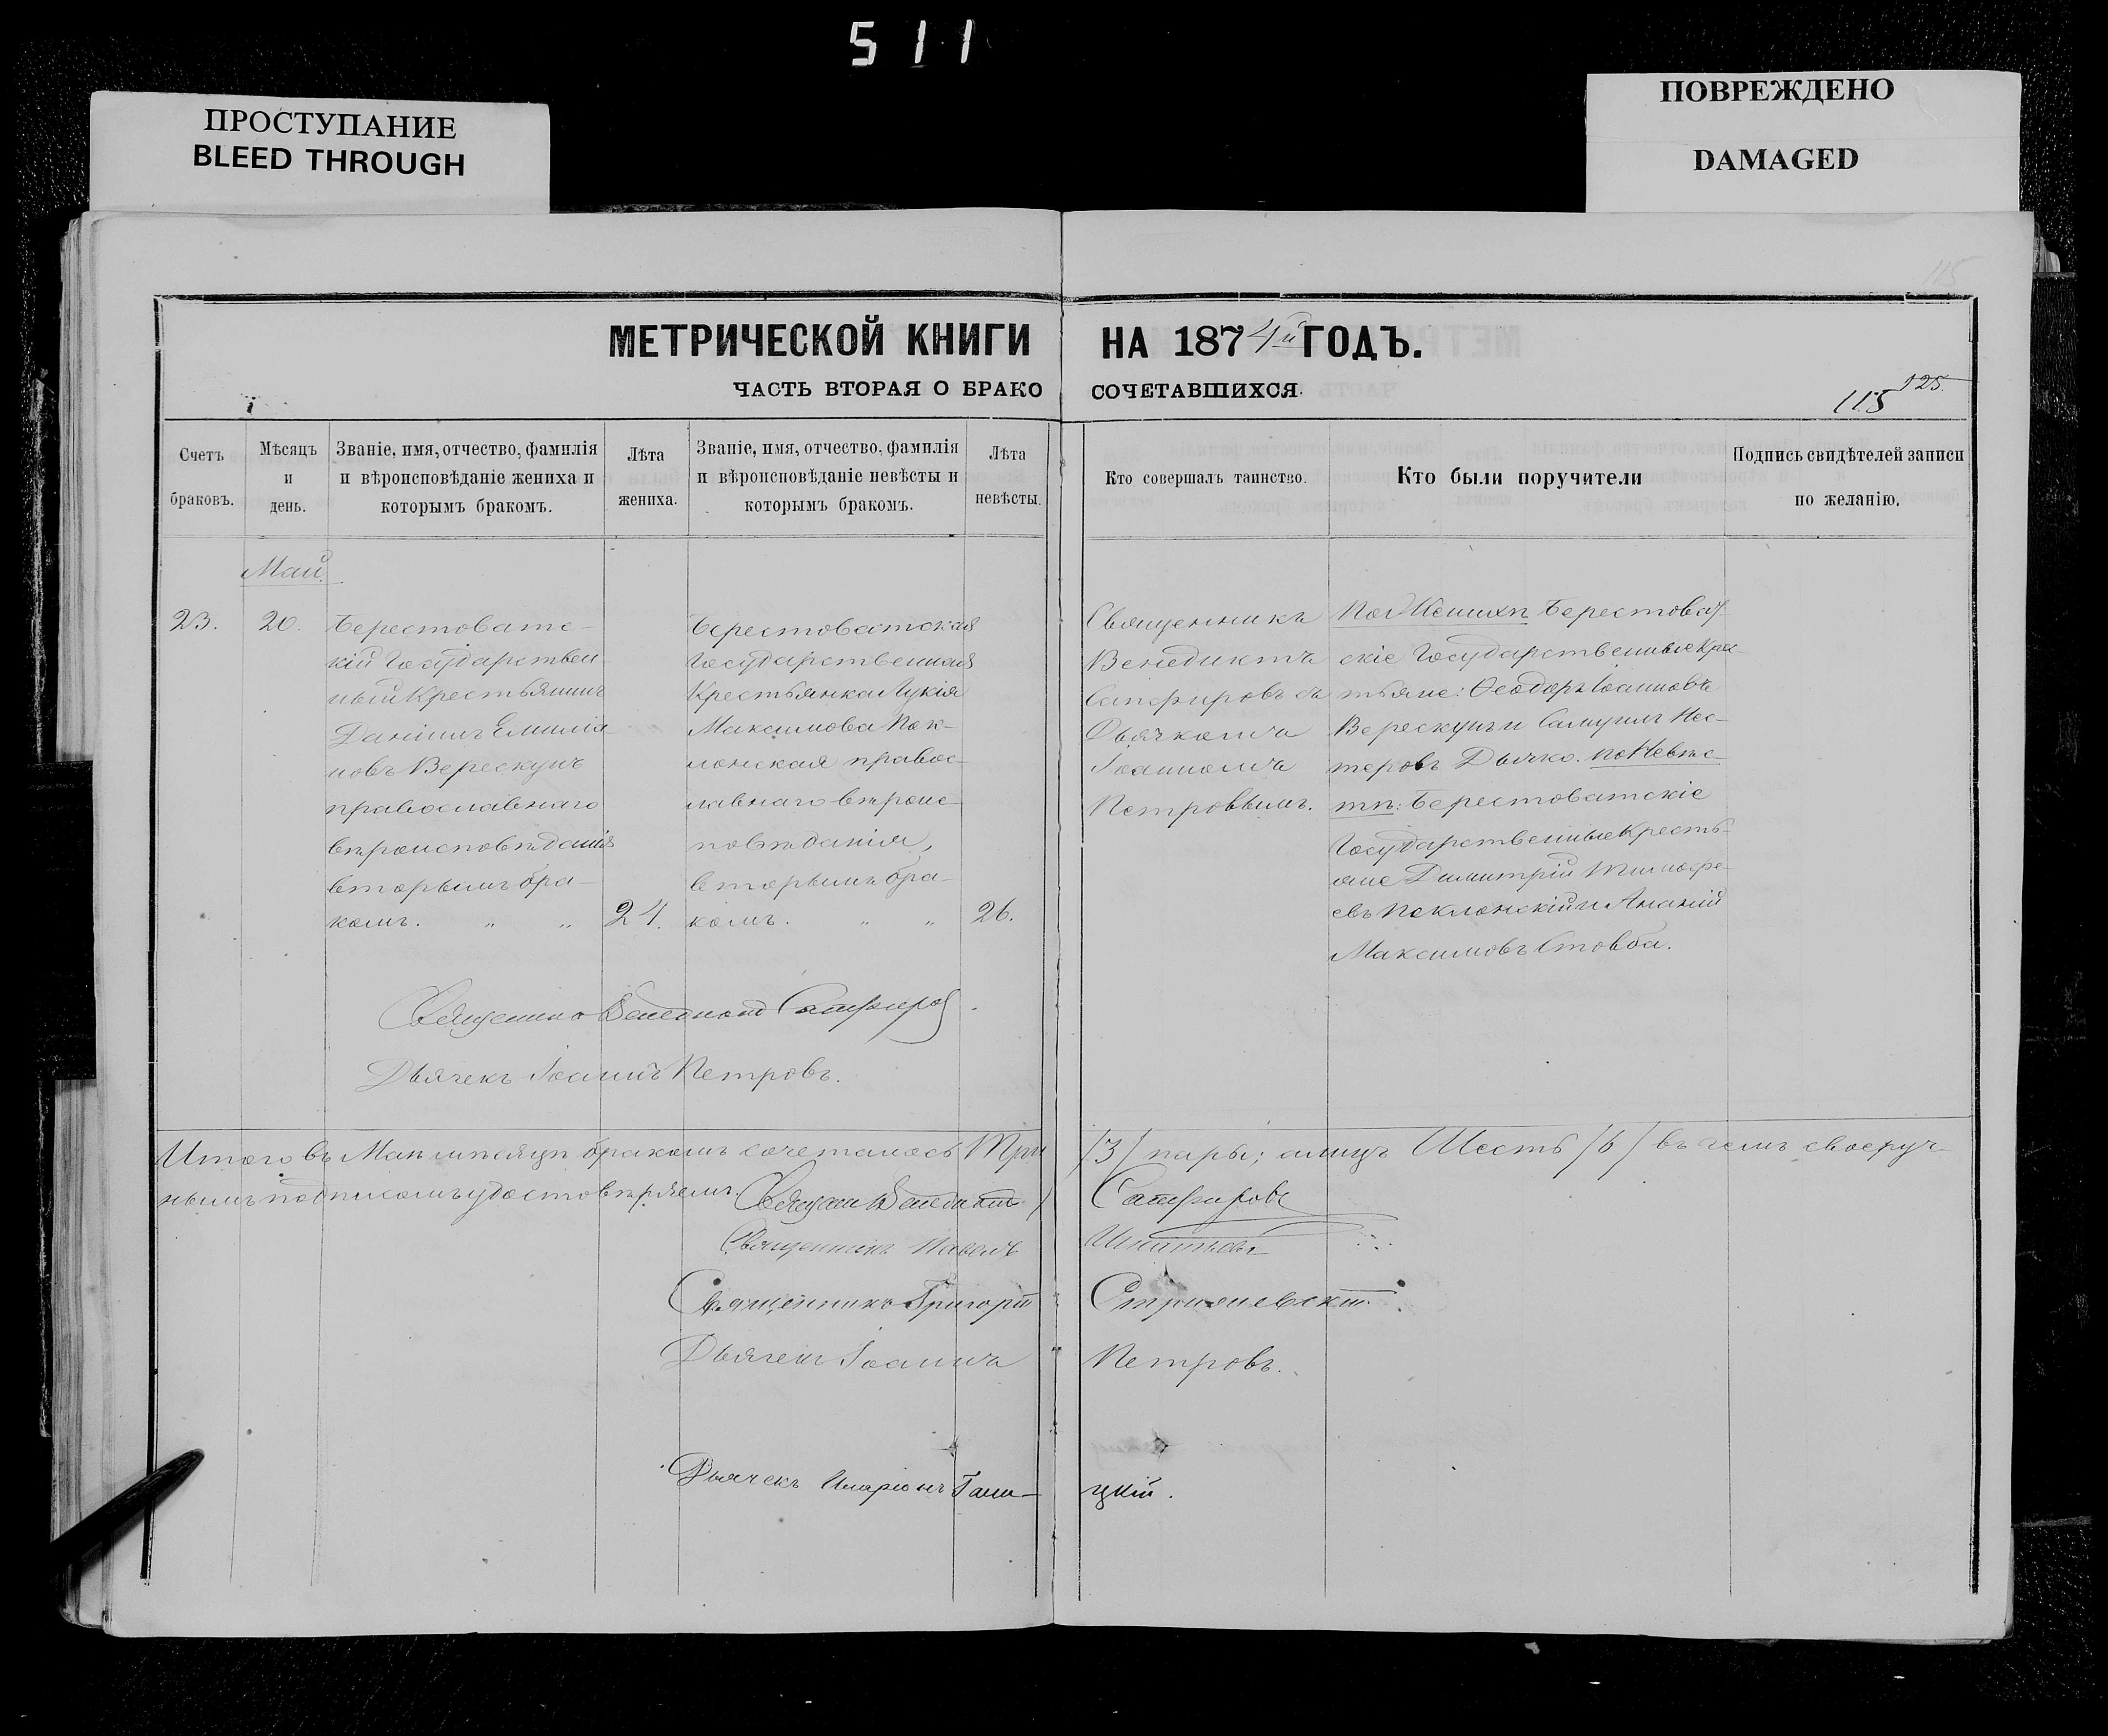 511
ПРОСТУПАНИЕ
BLEED THROUGH
ПОВРЕЖДЕНО
DAMAGED
115
МЕТРИЧЕСКОЙ КНИГИ НА 1874й ГОДЪ.
ЧАСТЬ ВТОРАЯ О БРАКОСОЧЕТАВШИХСЯ.
125.
115
Счетъ браковъ.
Мѣсяцъ и день.
Званіе, имя, отчество, фамилія
и вѣроисповѣданіе жениха и
которымъ бракомъ.
Лѣта жениха.
Званіе, имя, отчество, фамилія
и вѣроисповѣданіе невѣсты и
которымъ бракомъ.
Лѣта невѣсты.
Кто совершалъ таинство.
Кто были поручители
Подпись свидѣтелей записи
по желанію.
Май.
23.
20.
Берестоватс-
кій Государствен
ный Крестьянинъ
Даніилъ Емилiа
новъ Верескунъ
православнаго
вѣроисповѣданія
вторымъ бра-
комъ. " "
24.
Берестоватская
Государственная
Крестьянка Лукія
Максимова Пок-
лонская правос-
лавнаго вѣроис-
повѣданія,
вторымъ бра-
комъ. " "
26.
Священникъ
Венедиктъ
Сапфировъ съ
Дьячкомъ
Іоанномъ
Петровымъ.
По Женихѣ Берестоват-
скіе Государственные Крес-
тьяне: Ѳеодоръ Іоанновъ
Верескунъ и Самуилъ Нес-
теровъ Дычко. по Невѣс-
тѣ: Берестоватскіе
Государственные Кресть-
яне Димитрій Тимофе-
евъ Поклонскій и Ананій
Максимовъ Стовба.
Священникъ Венедиктъ Сапфировъ.
Дьячекъ Іоаннъ Петровъ.
Итого въ Маѣ мѣсяцѣ бракомъ сочеталось Три /3/ пары; лицъ Шесть /6/ въ чемъ своеруч-
нымъ подписомъ удостовѣряемъ. Священ. Венедиктъ Сапфировъ
Священникъ Павелъ
Священникъ Григорій
Дьячекъ Іоаннъ Петровъ.
Дьячекъ Иларіонъ Галицкій.